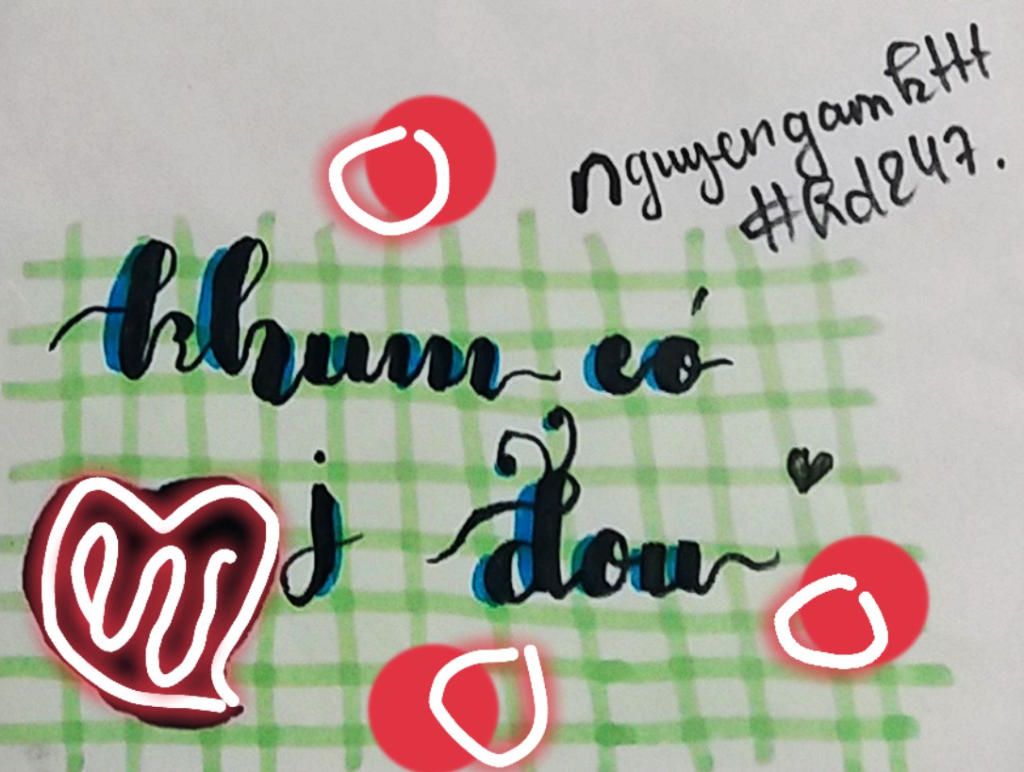 nguyengamkttt
#kd247.
khum có
j đou